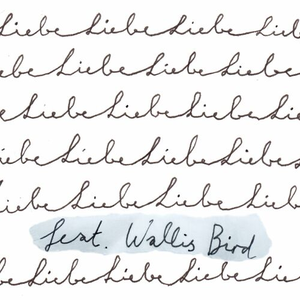 Liebe Liebe Liebe Liebe
be Liebe Liebe Liebe
Liebe Liebe Liebe Liebe
iebe Liebe Liebe Liebe
Liebe Liebe Liebe Liebe
feat. Wallis Bird
be Liebe Liebe Liebe Liebe